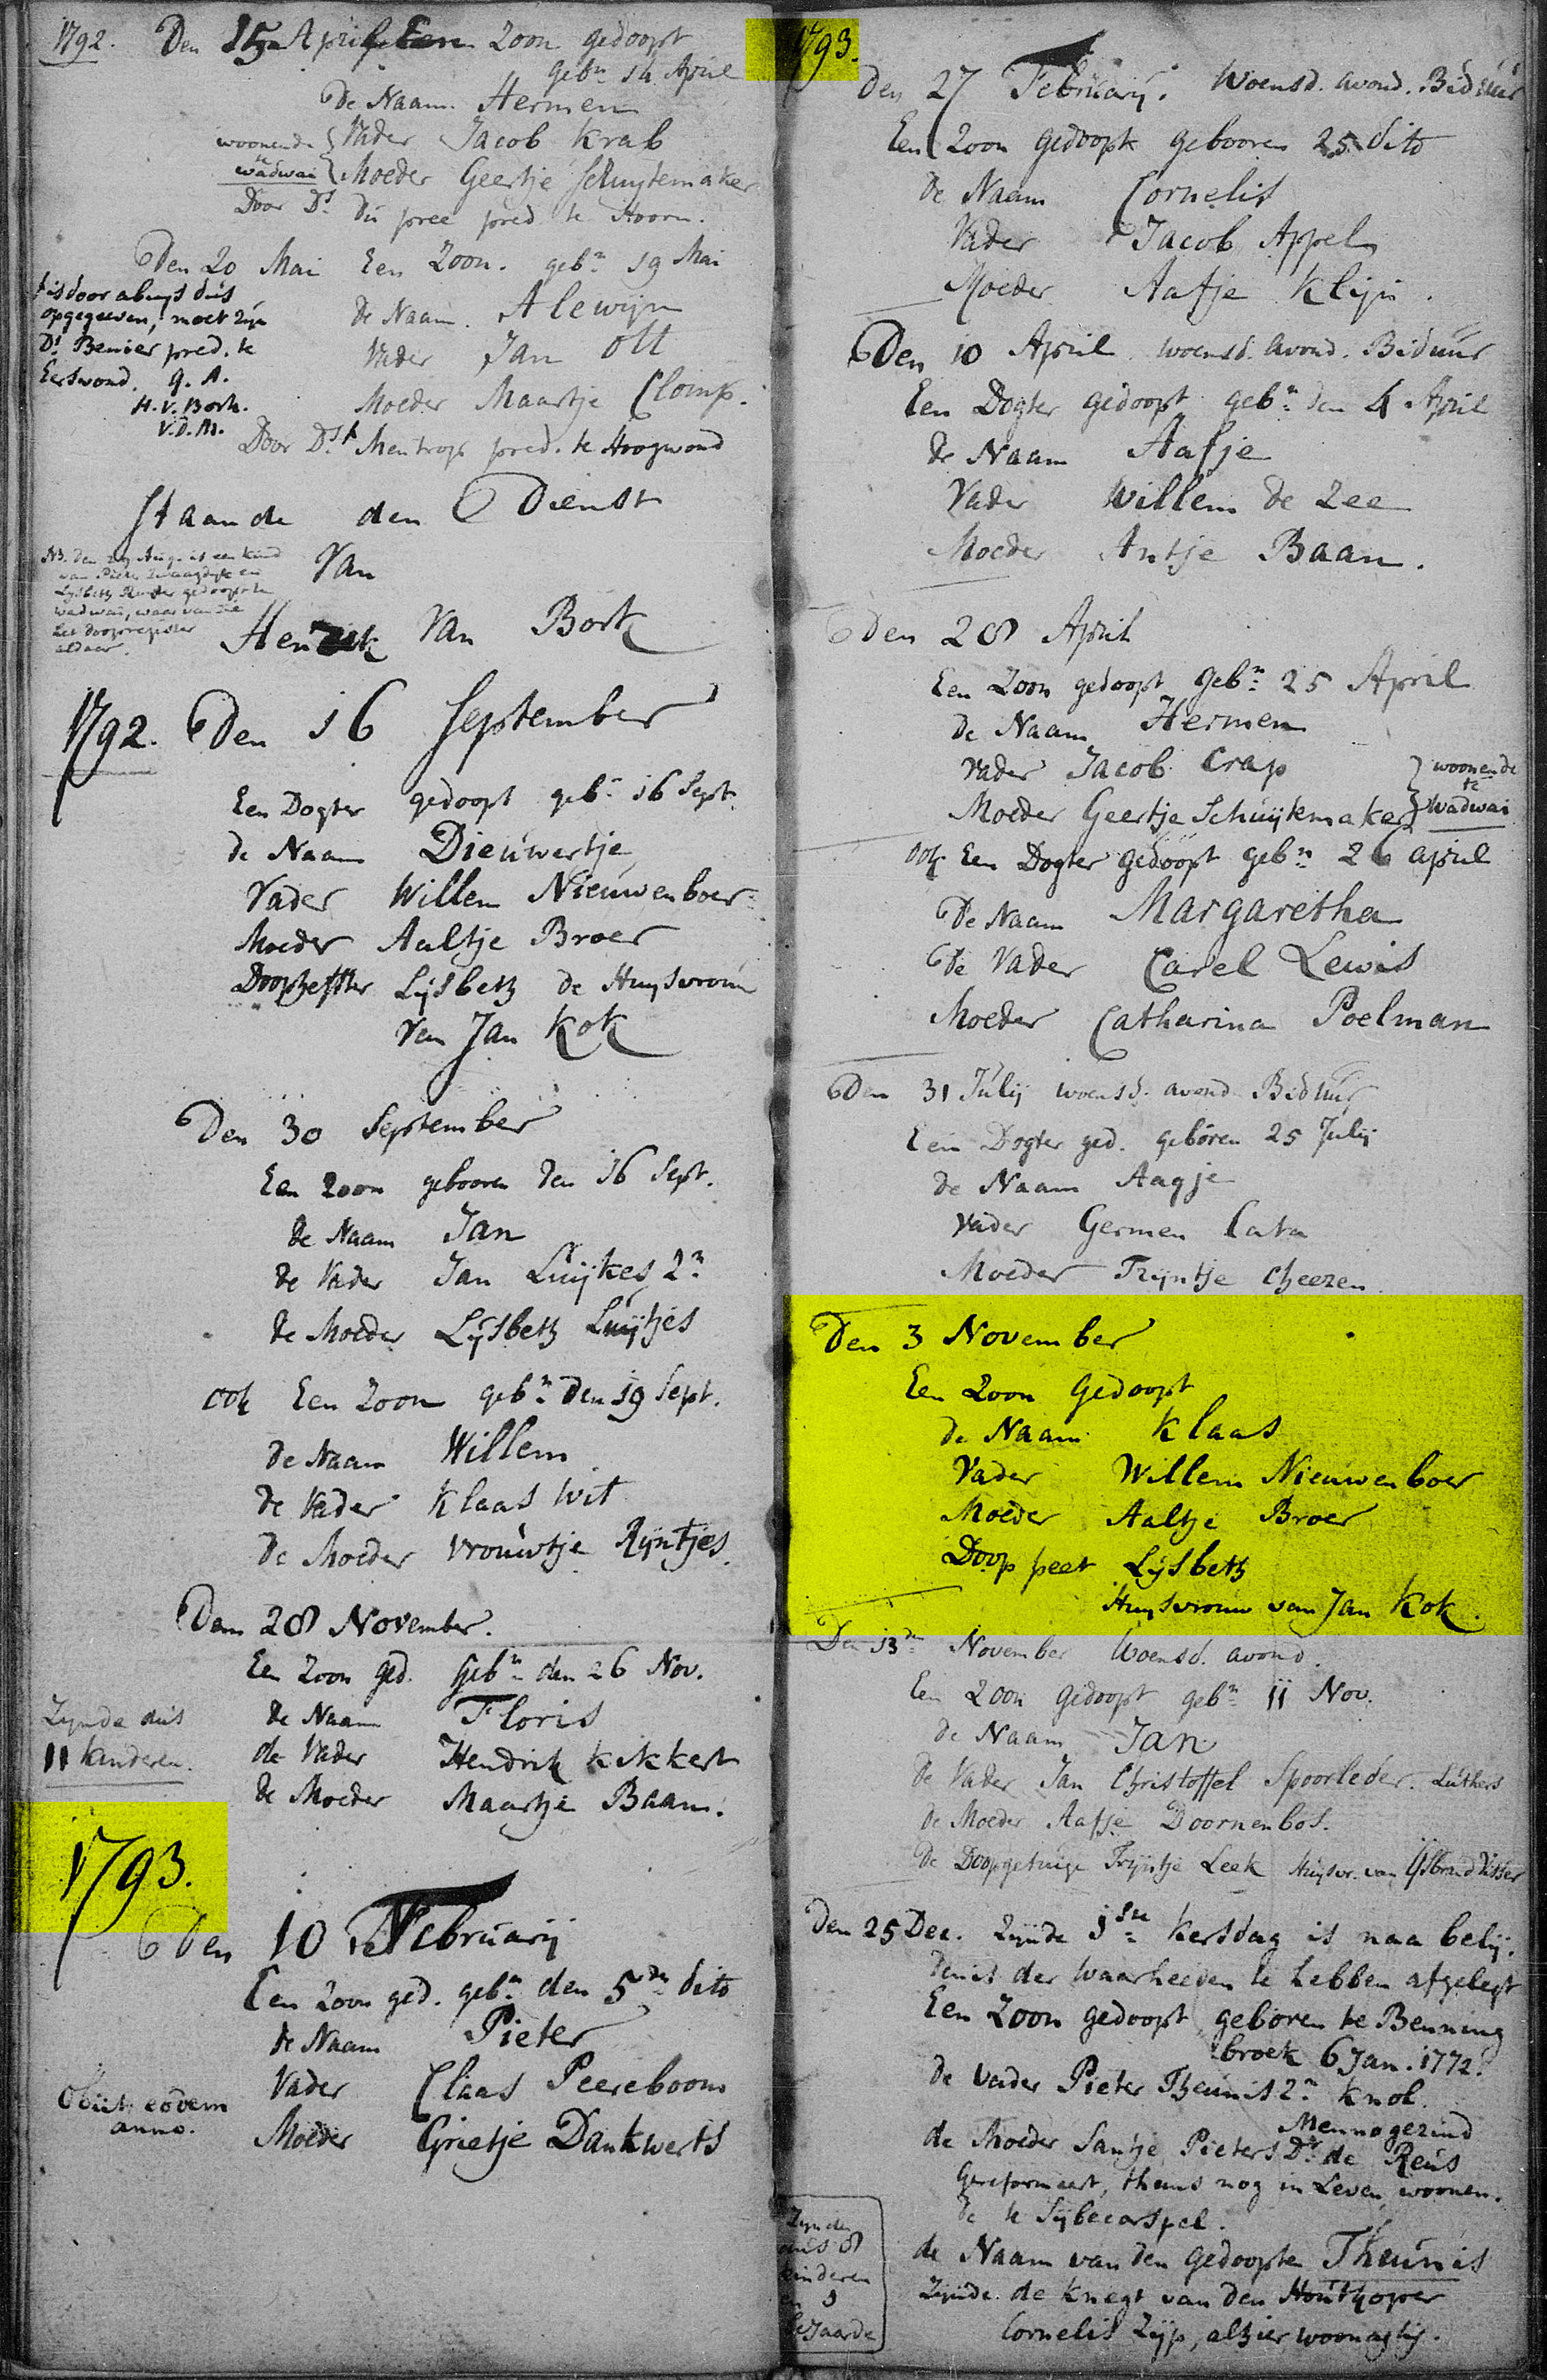 1792. Den 15 April Een Zoon gedoopt
gebn 14 April
De Naam Hermen
woonende te wadwai } Vader Jacob Krab
Moeder Geertje Schuytemaker
Door Ds du pree pred te Hoorn.
Den 20 Mai Een Zoon. gebn 19 Mai
de Naam. Alewijn
Vader Jan Ott
Moeder Maartje Cloimp.
Door Ds Mentrop pred. te Hoogwoud
† is door abuys dus
opgegeeven, moet zyn
Ds Benier pred. te
Eerswoud. q. A.
H. V. Bork.
V.D.M.
Staande den Dienst
Van
Hendrik Van Bork
NB. den 29 Aug. is een kind
van Pieter Zwaagdyk en
Lysbeth gedoopt te
Wadwai, waar van zie
het doopregister
aldaar.
1792. Den 16 September
Een Dogter gedoopt gebn 16 Sept.
de Naam Dieuwertje
Vader Willem Nieuwenboer
Moeder Aaltje Broer
Doophefster Lijsbeth de Huysvrouw
Van Jan Kok
Den 30 September
Een zoon gebooren den 16 Sept.
de Naam Jan
de Vader Jan Luijkes Zn
de Moeder Lijsbeth Luijtjes
ook Een Zoon gebn den 19 Sept.
de Naam Willem
de Vader Klaas Wit
de Moeder Vrouwtje Rijntjes.
Den 28 November.
Een Zoon ged. gebn den 26 Nov.
de Naam Floris
de Vader Hendrik Kikkert
de Moeder Maartje Baan.
Zynde dus
11 kinderen.
1793.
Den 10 Februarij
Een zoon ged. gebn den 5den dito
de Naam Pieter
Vader Claas Peereboom
Moeder Grietje Dankwerts
Obiit eodem
anno.
1793.
Den 27 February. Woensd. avond. Biduur
Een Zoon gedoopt gebooren 25 dito
de Naam Cornelis
Vader Jacob Appel
Moeder Aafje Klijn.
Den 10 April woensd. avond. Biduur
Een Dogter gedoopt gebn den 4 April
de Naam Aafje
Vader Willem de Zee
Moeder Antje Baan.
Den 28 April
Een Zoon gedoopt gebn 25 April
de Naam Hermen
Vader Jacob Crap
Moeder Geertje Schuijtemaker } woonende te Wadwai
ook Een Dogter gedoopt gebn 26 april
De Naam Margaretha
de Vader Carel Lewis
Moeder Catharina Poelman
Den 31 Julij woensd. avond Biduur
Een Dogter ged. geboren 25 Julij
de Naam Aagje
Vader Germen Cata
Moeder Trijntje Cheezen.
Den 3 November
Een Zoon Gedoopt
de Naam Klaas
Vader Willem Nieuwenboer
Moeder Aaltje Broer
Doop peet Lijsbeth
Huysvrouw van Jan Kok.
Den 13den November Woensd. avond.
Een Zoon gedoopt gebn 11 Nov.
de Naam Jan
de Vader Jan Christoffel Spoorleder. Luthers
de Moeder Aafje Doornenbos.
de Doopgetuige Trijntje Leek Huysvr. van IJsbrand Visser
Den 25 Dec. Zijnde 1ste kersdag is naa belij.
denis der Waarheeden te hebben afgelegt
Een Zoon gedoopt geboren te Benning
broek 6 Jan. 1772.
de Vader Pieter Theunis Zn Knol.
Mennogezind
de Moeder Santje Pieters Dr de Reus
Gereformeert, thans nog in Leven, woonen.
de te Sijbecarspel.
de Naam van den gedoopte Theunis
Zijnde de knegt van den Houtkoper
Cornelis Zijp, alhier woonagtig.
Zynde
dus 8
kinderen
en 1
bejaarde